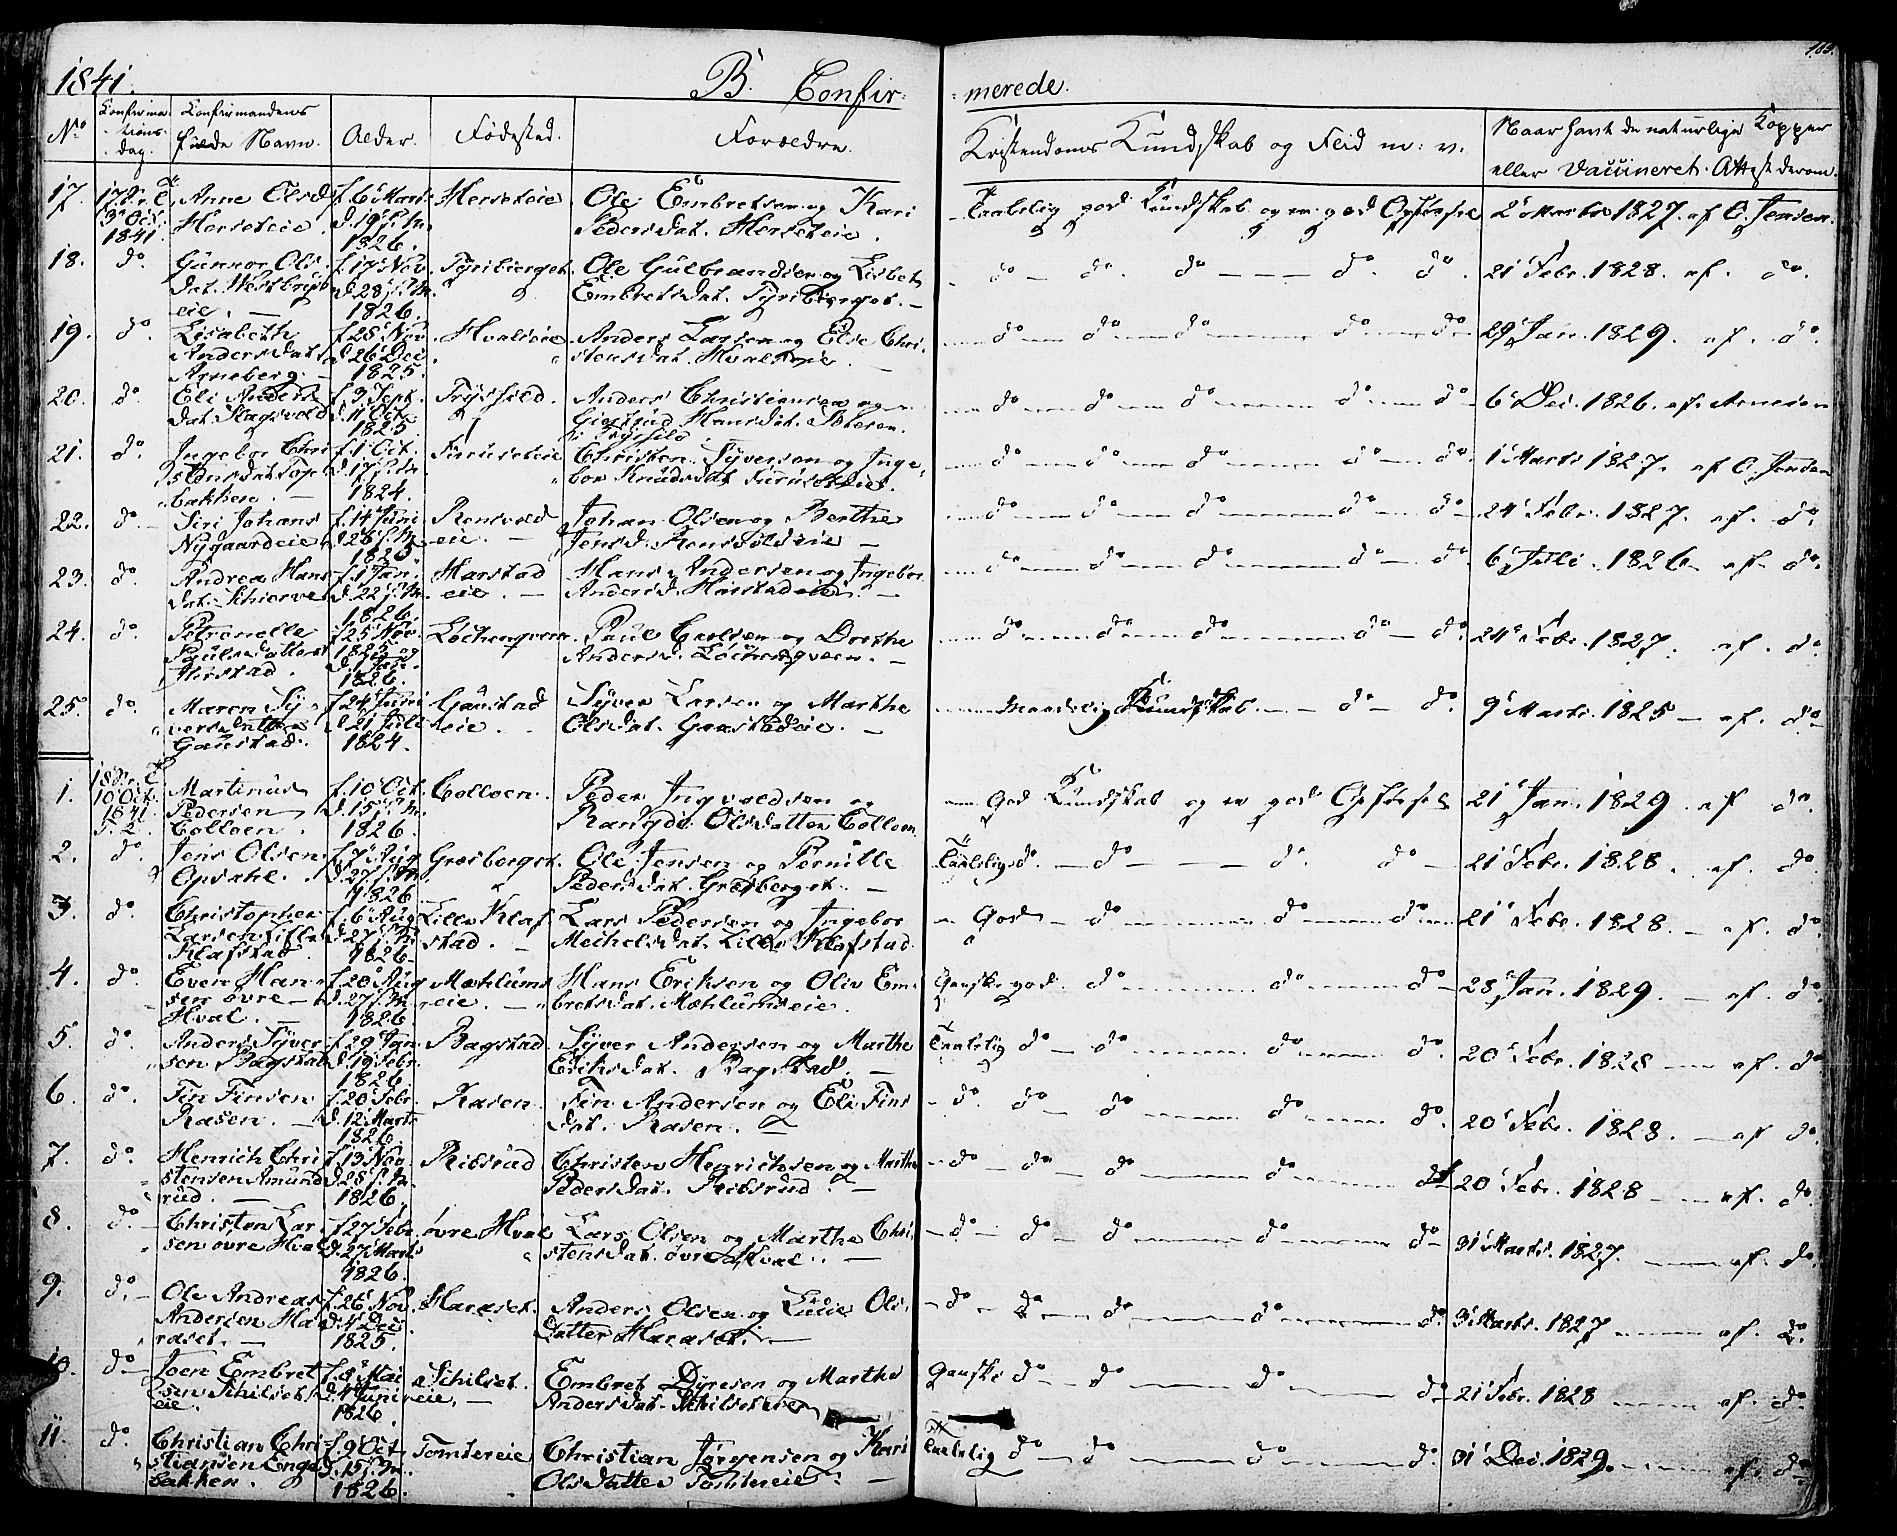 1841.
B. Confir-
-merede.
103.
No
Confirma-
tions-
dag.
Confirmandens
fulde Navn.
Alder.
Fødested.
Forældre.
Kristendoms Kundskab og Flid m: v.
Naar havt de naturlige Kopper
eller Vaccineret. Attest derom.
17.
17de S. e. Tr.
3 Oct.
1841.
Anne Olsd.
Herseteie.
f. 6 Marts
d. 19 s. M.
1826.
Herseteie
Ole Embretsen og Kari
Pedersdat. Herseteie.
Taalelig god Kundskab og er god Opførsel
2 Marts 1827. af O. Jensen.
18.
do.
Gunnor Ols-
dat. Westbye-
eie.
f. 17 Nov
d. 28 s. M.
1826.
Tyriberget.
Ole Gulbrandsen og Lisbet
Embretsdat. Tyriberget.
do - do. do - - - do. do.
21 Febr. 1828. af. do.
19.
do.
Lisabeth
Andersdat.
Arneberg.
f. 28 Nov
d. 26 Dec
1825.
Hvalseie
Anders Larsen og Else Chri-
stensdat. Hvalseie.
do do do do do
29 Jan. 1829. af. do.
20.
do.
Eli Anders-
dat. Slagsvold
f. 3 Sept.
d. 11 Oct.
1825
Trysfild.
Anders Christiansen og
Giertrud Hansdat. Stteren
i Trysfild
do do do do do
6 Dec. 1826. af. Arnesen
21.
do.
Ingebor Chri-
stensdat. Tope-
bakken.
f. 1 Oct.
d. 17 s. M.
1824.
Furuseteie
Christen Syversen og Inge-
bor Knudsdat Furuseteie.
do do do do do.
1 Marts 1827. af O. Jensen
22.
do.
Siri Johans
Nygaardeie
f. 14 Juni
d. 26 s. M.
1825
Rensvold
eie.
Johan Olsen og Berthe
Jensd. Rensvoldeie
do do do do do
24 Febr. 1827. af. do.
23.
do.
Andrea Hans
dat. Schierve
f. 1 Jan.
d. 22 s. M.
1826.
Harstad
eie.
Hans Andersen og Ingebor
Andersd. Harstadeie.
do do do do do.
6 Juli. 1826. af. do.
24.
do.
Petronelle
Paulsdatter
Harstad.
f. 25 Nov
1825 og
d. 1 Jan.
1826.
Løchenqværn.
Paul Carlsen og Dorthe
Andersd. Løchenqværn.
do do do do do.
24 Febr. 1827. af. do.
25.
do.
Maren Sy-
versdatter
Gaustad.
f. 24 Juni
d. 21 Juli
1824.
Gaustad
eie.
Syver Larsen og Marthe
Olsdat. Gaustadeie.
Maadelig Kundskab do do.
9 Marts. 1825 af. do
1.
18de S. e. Tr.
10 Oct.
1841.
Martinus
Pedersen
Colloen.
f. 10 Oct.
d. 15 s. M.
1826.
Colloen.
Peder Ingvoldsen og
Rangdi Olsdatter Colloen
God Kundskab og er god Opførsel
21 Jan. 1829. af do.
2.
do.
Jens Olsen
Opsahl.
f. 7 Aug
d. 27 s. M.
1826
Græsberget.
Ole Jensen og Pernille
Pedersdat. Græsberget.
Taalelig do. do do. do
21 Febr. 1828. af. do.
3.
do.
Christopher
Larsen Lille
Klafstad.
f. 6 Aug
d. 27 s. M.
1826.
Lille Klaf
stad.
Lars Pedersen og Ingebor
Mechelsdat. Lille Klafstad.
God do do do
21 Febr. 1828. af. do.
4.
do.
Even Han-
sen øvre
Hval.
f. 20 Aug
d. 27 s. M.
1826
Mæhlums
eie.
Hans Eriksen og Oliv Em-
bretsdat. Mæhlumseie.
Ganske god. do do do
28 Jan. 1829. af. do.
5.
do.
Anders Syver-
sen Bagstad
f. 29 Jan
d. 19 Febr.
1826
Bagstad.
Syver Andersen og Marthe
Eriksdat. Bagstad.
Taalelig do do do do.
20 Febr. 1828 af. do.
6.
do.
Fin Finsen
Rasen.
f. 20 Febr.
d. 12 Marts
1826.
Rasen
Fin Andersen og Eli Fins
dat. Rasen.
do. do do do do.
20 Febr. 1828. af do.
7.
do.
Henrich Chri
stensen Amund
rud.
f. 13 Nov.
d. 28 s. M.
1826.
Ribsrud
Christen Henrichsen og Marthe
Pedersdat. Ribsrud.
do do do do do
20 Febr. 1828 af. do.
8.
do.
Christen Lar-
sen øvre Hval
f. 27 Febr.
d. 27 Marts
1826.
øvre Hval
Lars Olsen og Marthe Chri-
stensdat. øvre Hval.
do do do do do
31 Marts. 1827. af. do.
9.
do.
Ole Andreas
Andersen Ha-
raset.
f. 26 Nov.
d. 4 Dec
1825.
Haraset.
Anders Olsen og Lucie Ols-
datter Haraset.
do do do do do.
3 Marts. 1827 af. do.
10.
do.
Joen Embret-
sen Schilset
eie.
f. 8 Mai
d. 4 Juni
1826.
Schilset
eie.
Embret Dyresen og Marthe
Andersdat. Schilseteie
Ganske do do do do
21 Febr. 1828 af. do.
11.
do.
Christian Chri-
stiansen Enge
bakken.
f. 9 Oct.
d. 15 s. M.
1826.
Tomtereie
Christian Jørgensen og Kari
Olsdatter Tomtereie.
Taalelig do do do do.
31 Dec. 1829. af. do.